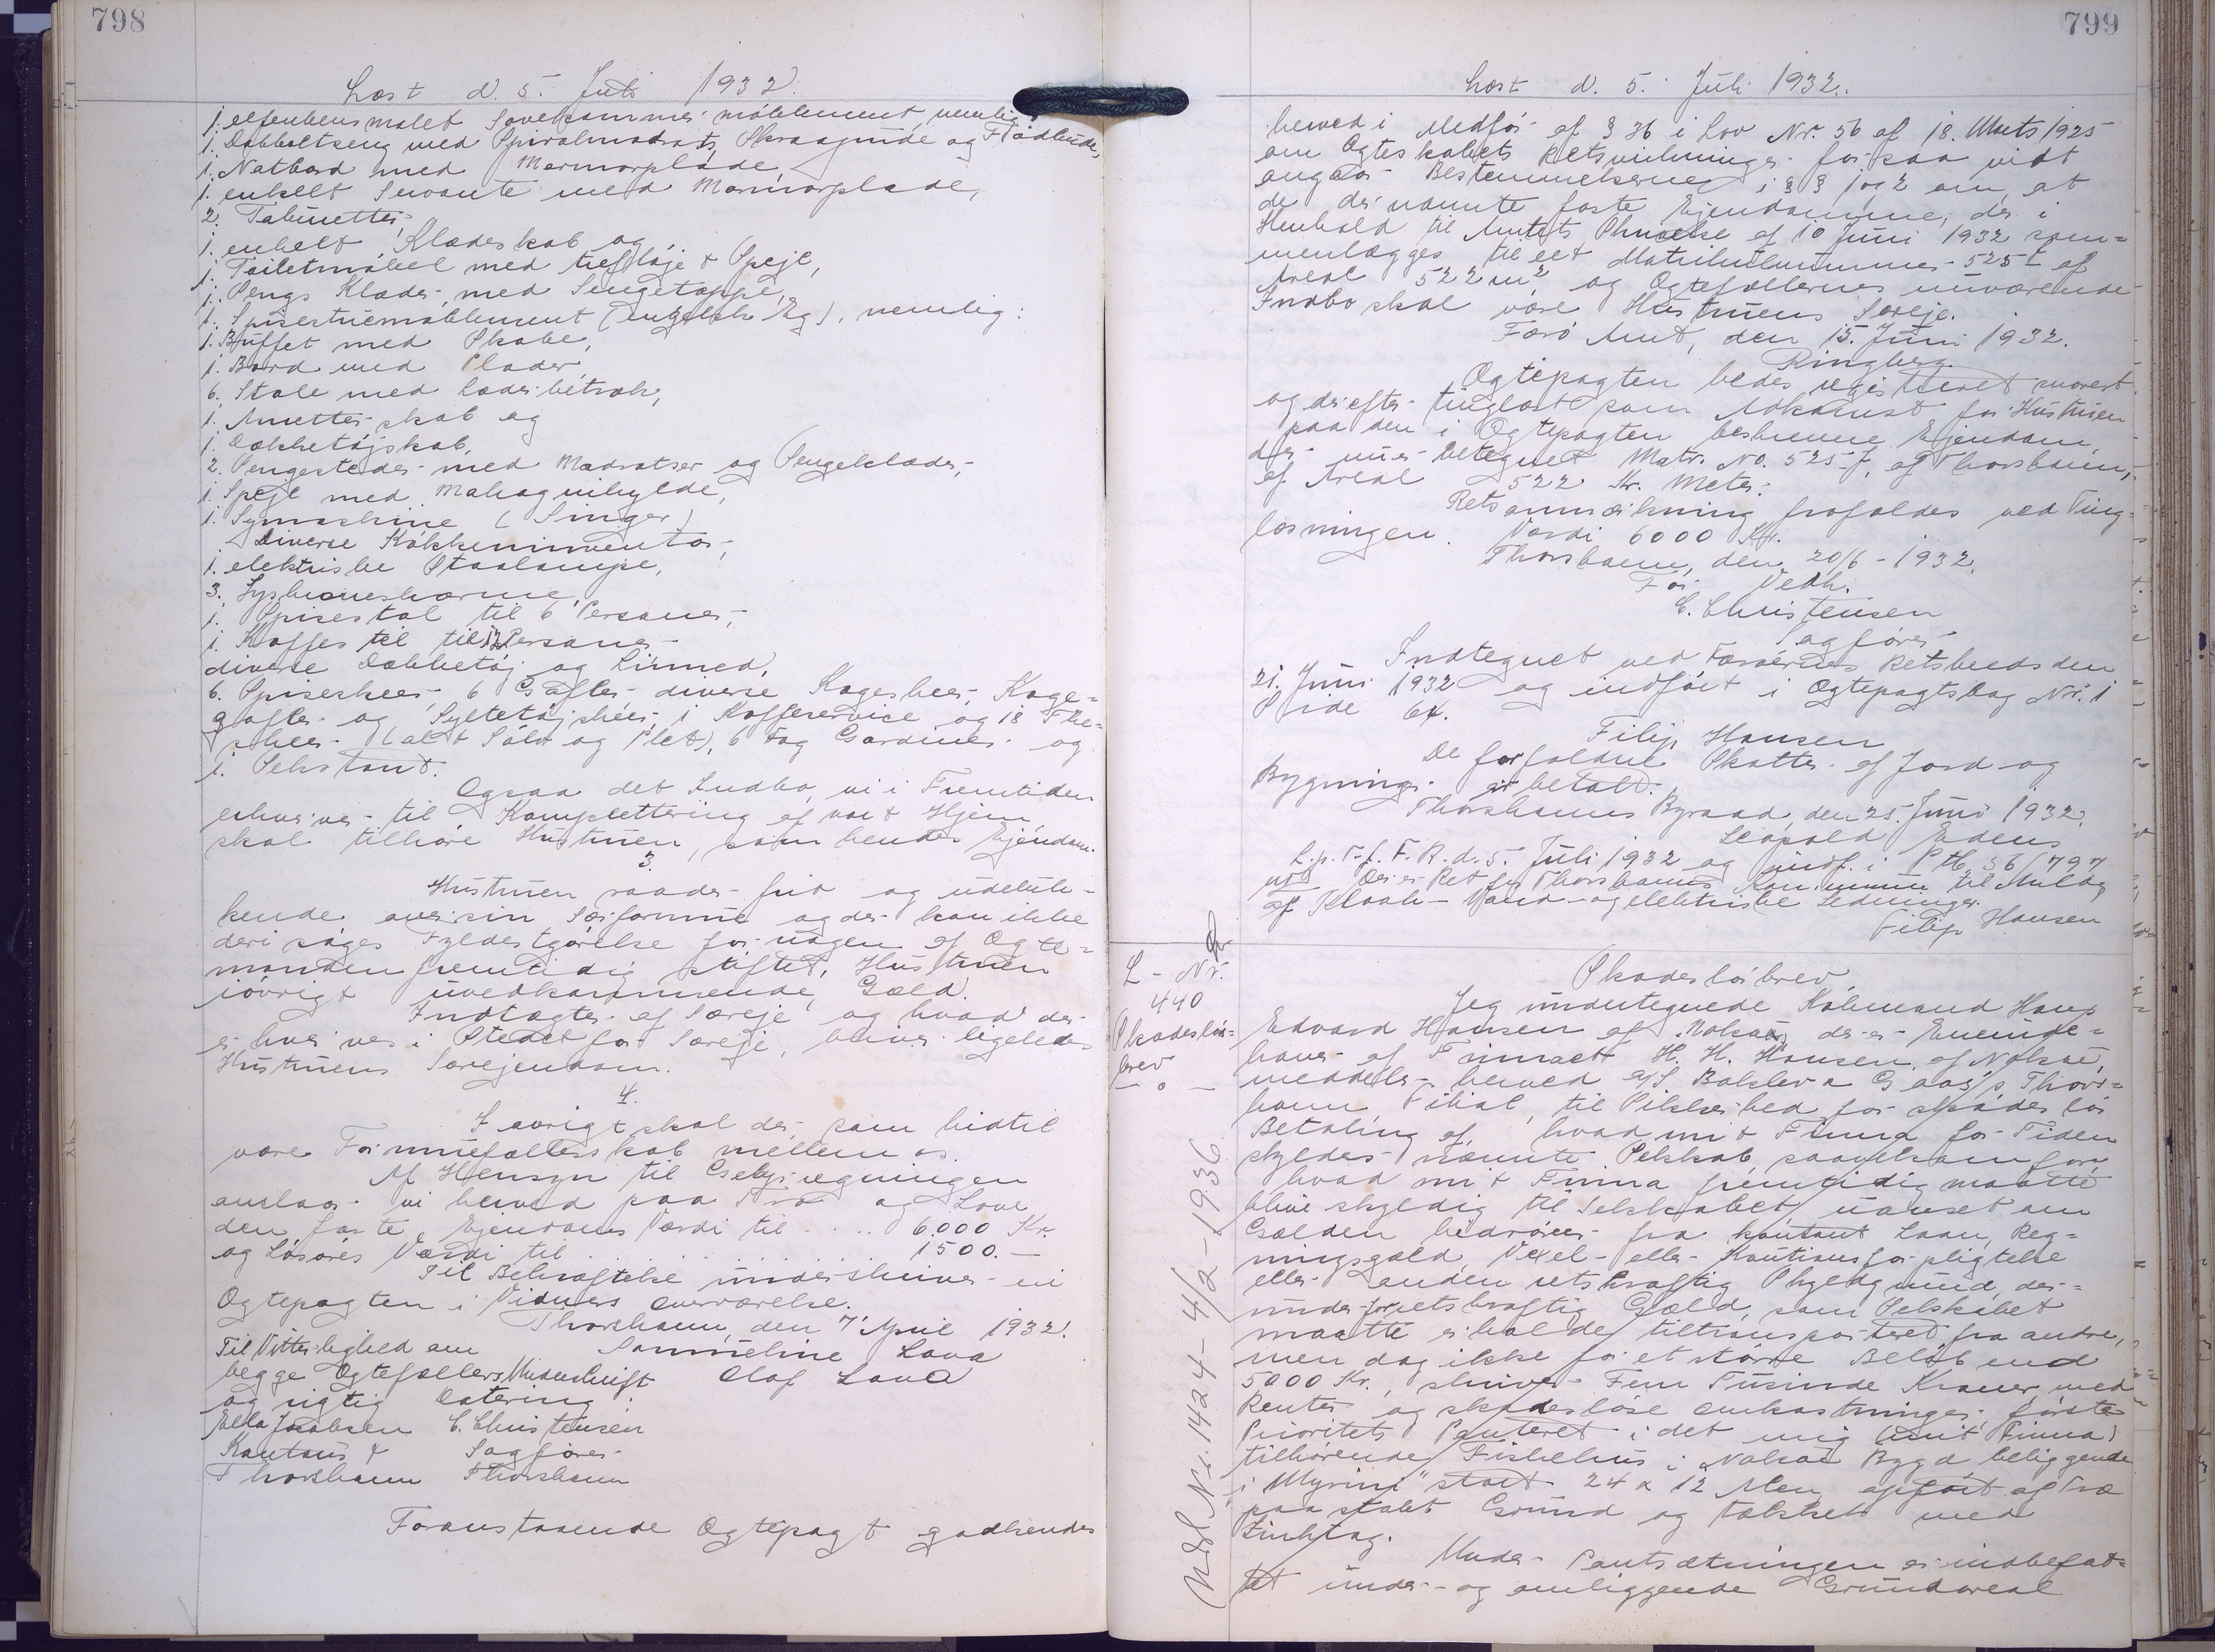 798
Læst d. 5. Juli 1932.
1. elfenbensmalet Sovekammermöblement, nemlig
1. Dobbeltseng med Spiralmadrats, Skraapude og Fiådbude,
1. Natbord med Marmorplade,
1. enkelt Servante med Marmorplade,
2. Taburetter,
1. enkelt Klædeskab og
1. Toiletmöbel med trefløje & Spejl,
1. Sengs Klæder med Sengetæppe,
1. Spisestuemøblement (engelsk Eg), nemlig:
1. Buffet med Skabe,
1. Bord med Plader,
6. Stole med Læderbetræk,
1. Anretterskab og
1. Dækketøjskab,
2. Sengesteder med Madratser og Sengeklæder,
1. Spejl med Mahognihylde,
1. Symaskine (Singer)
Diverse Køkkeninventar,
1. elektriske Staalampe,
3. Lyskonesherme,
1. Spisestel til 6 Personer,
1. Kaffestel til 12 Personer
diverse Dækketøj og Linned,
6. Spiseskeer, 6 Gafler, diverse Kageskeer, Kage-
gafler og Syltetøjskeer, 1 Kaffeservice og 18 The-
skeer (alt Sölv og Plet), 6 Fag Gardiner og
1. Sekstant.
Ogsaa det Indbo, vi i Fremtiden
erhverver til Komplettering af vort Hjem,
skal tilhöre Hustruen, som hendes Ejendom.
3.
Hustruen raader frit og udeluk-
kende over sin Særformue og der kan ikke
deri søges Fyldestgörelse for nogen af Ægte-
manden fremtidig stiftet, Hustruen
iövrigt uvedkommende, Gæld.
Indtægter af Særeje og hvad der
erhverves i Stedet for Særeje, bliver ligeledes
Hustruens Særejendom.
4.
I øvrigt skal der som hidtil
være Formuefællesskab mellem os.
Af Hensyn til Gebyrregningen
anslaar vi herved paa Tro og Love
den faste Ejendoms Værdi til .... 6.000 Kr.
og Løsøres Værdi til .... 1500.—
Til Bekræftelse underskriver vi
Ægtepagten i Vidners Overværelse.
Thorshavn, den 7' April 1932.
Til Vitterlighed om Sanneline Lava
begge Ægtefællers Underskrift Olaf Lava
og rigtig Datering:
Ella Jacobsen C. Christensen
Kontorist Sagfører
Thorshavn Thorshavn
Foranstaaende Ægtepagt godkendes
799
Læst d. 5. Juli 1932.
herved i Medfør af § 36 i Lov Nr. 56 af 18. Marts 1925
om Ægteskabets Retsvirkninger for saa vidt
angaar Bestemmelserne i §§ 1 og 2 om, at
de der nævnte faste Ejendomme, der i
Henhold til Amtets Skrivelse af 10 Juni 1932 sam-
menlægges til eet Matrikulnummer 525f af
Areal 522 m², og Ægtefællernes nuværende
Indbo skal være Hustruens Særeje.
Færö Amt, den 15. Juni 1932.
Ringberg.
Ægtepagten bedes registreret snarest
og derefter tinglæst som Adkomst for Hustruen
paa den i Ægtepagten beskrevne Ejendom,
der nu er betegnet Matr. No. 525f, af Thorshavn,
af Areal 522 Kv. Meter.
Retsanmærkning frafaldes ved Ting-
læsningen. Værdi 6000 Kr.
Thorshavn, den 20/6 - 1932.
For Vedk.
C. Christensen
Sagfører
Indtegnet ved Færøernes Retskreds den
21. Juni 1932 og indført i Ægtepagtsbog Nr. 1
Side 64.
Filip Hansen
De forfaldne Skatter af Jord og
Bygninger er betalt.
Thorshavns Byraad, den 25. Juni 1932.
Leopold Edens
L.p.T.f.F.R.d. 5. Juli 1932 og indf. i S.Pt. 56/797
Der er Ret for Thorshavns Kommune til Anlæg
af Kloak- Vand- og elektriske Ledninger.
Filip Hansen
L - Nr.
440
Skadesløs-
brev
— o —
Skadesløsbrev.
Jeg undertegnede Købmand Hans
Edvard Hansen af Nolsø, der er Eneinde-
haver af Firmaet H. H. Hansen, af Nolsø,
meddeler herved A/S. Valdemar Lützens Thors-
havn, Filial, til Sikkerhed for skadesløs
Betaling af, hvad mit Firma for Tiden
skylder nævnte Selskab, saavelsom for,
hvad mit Firma fremtidig maatte
blive skyldig til Selskabet, uanset om
Gælden hidrører fra kontant Laan, Reg-
ningsgæld, Vexel- eller Kautionsforpligtelse
eller anden retskraftig Skyldgrund, der-
under for retskraftig Gæld, som Selskabet
maatte erholde tiltransporteret fra andre,
men dog ikke for et större Beløb end
5000 Kr., skriver Fem Tusinde Kroner med
Renter og skadesløse Omkostninger, første
Prioritets Panteret i det mig (mit Firma)
tilhørende Fiskehus i Nolsø Bygd beliggende
"i Myrini" stort 24 x 12 Alen, opført af Træ
paa støbt Grund og tækket med
Zinktag.
Under Pantsætningen er indbefat-
tet under- og omliggende Grundareal
Udsl. Nr. 1424 - 4/2 - 1936